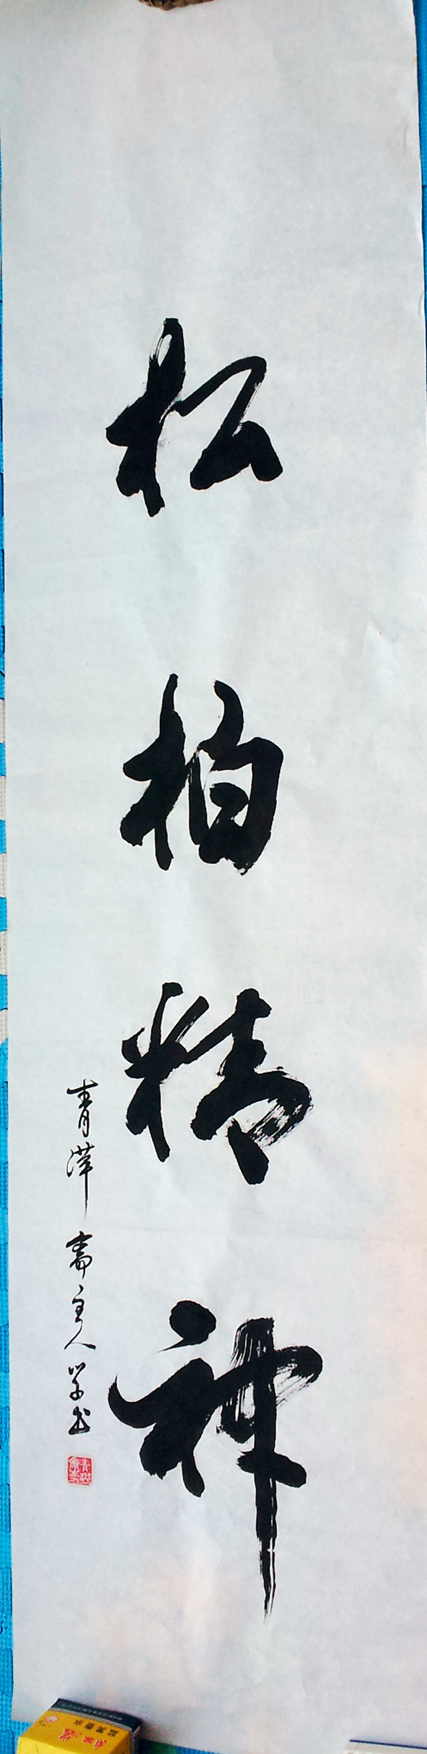 松柏精神
青萍斋主人学书